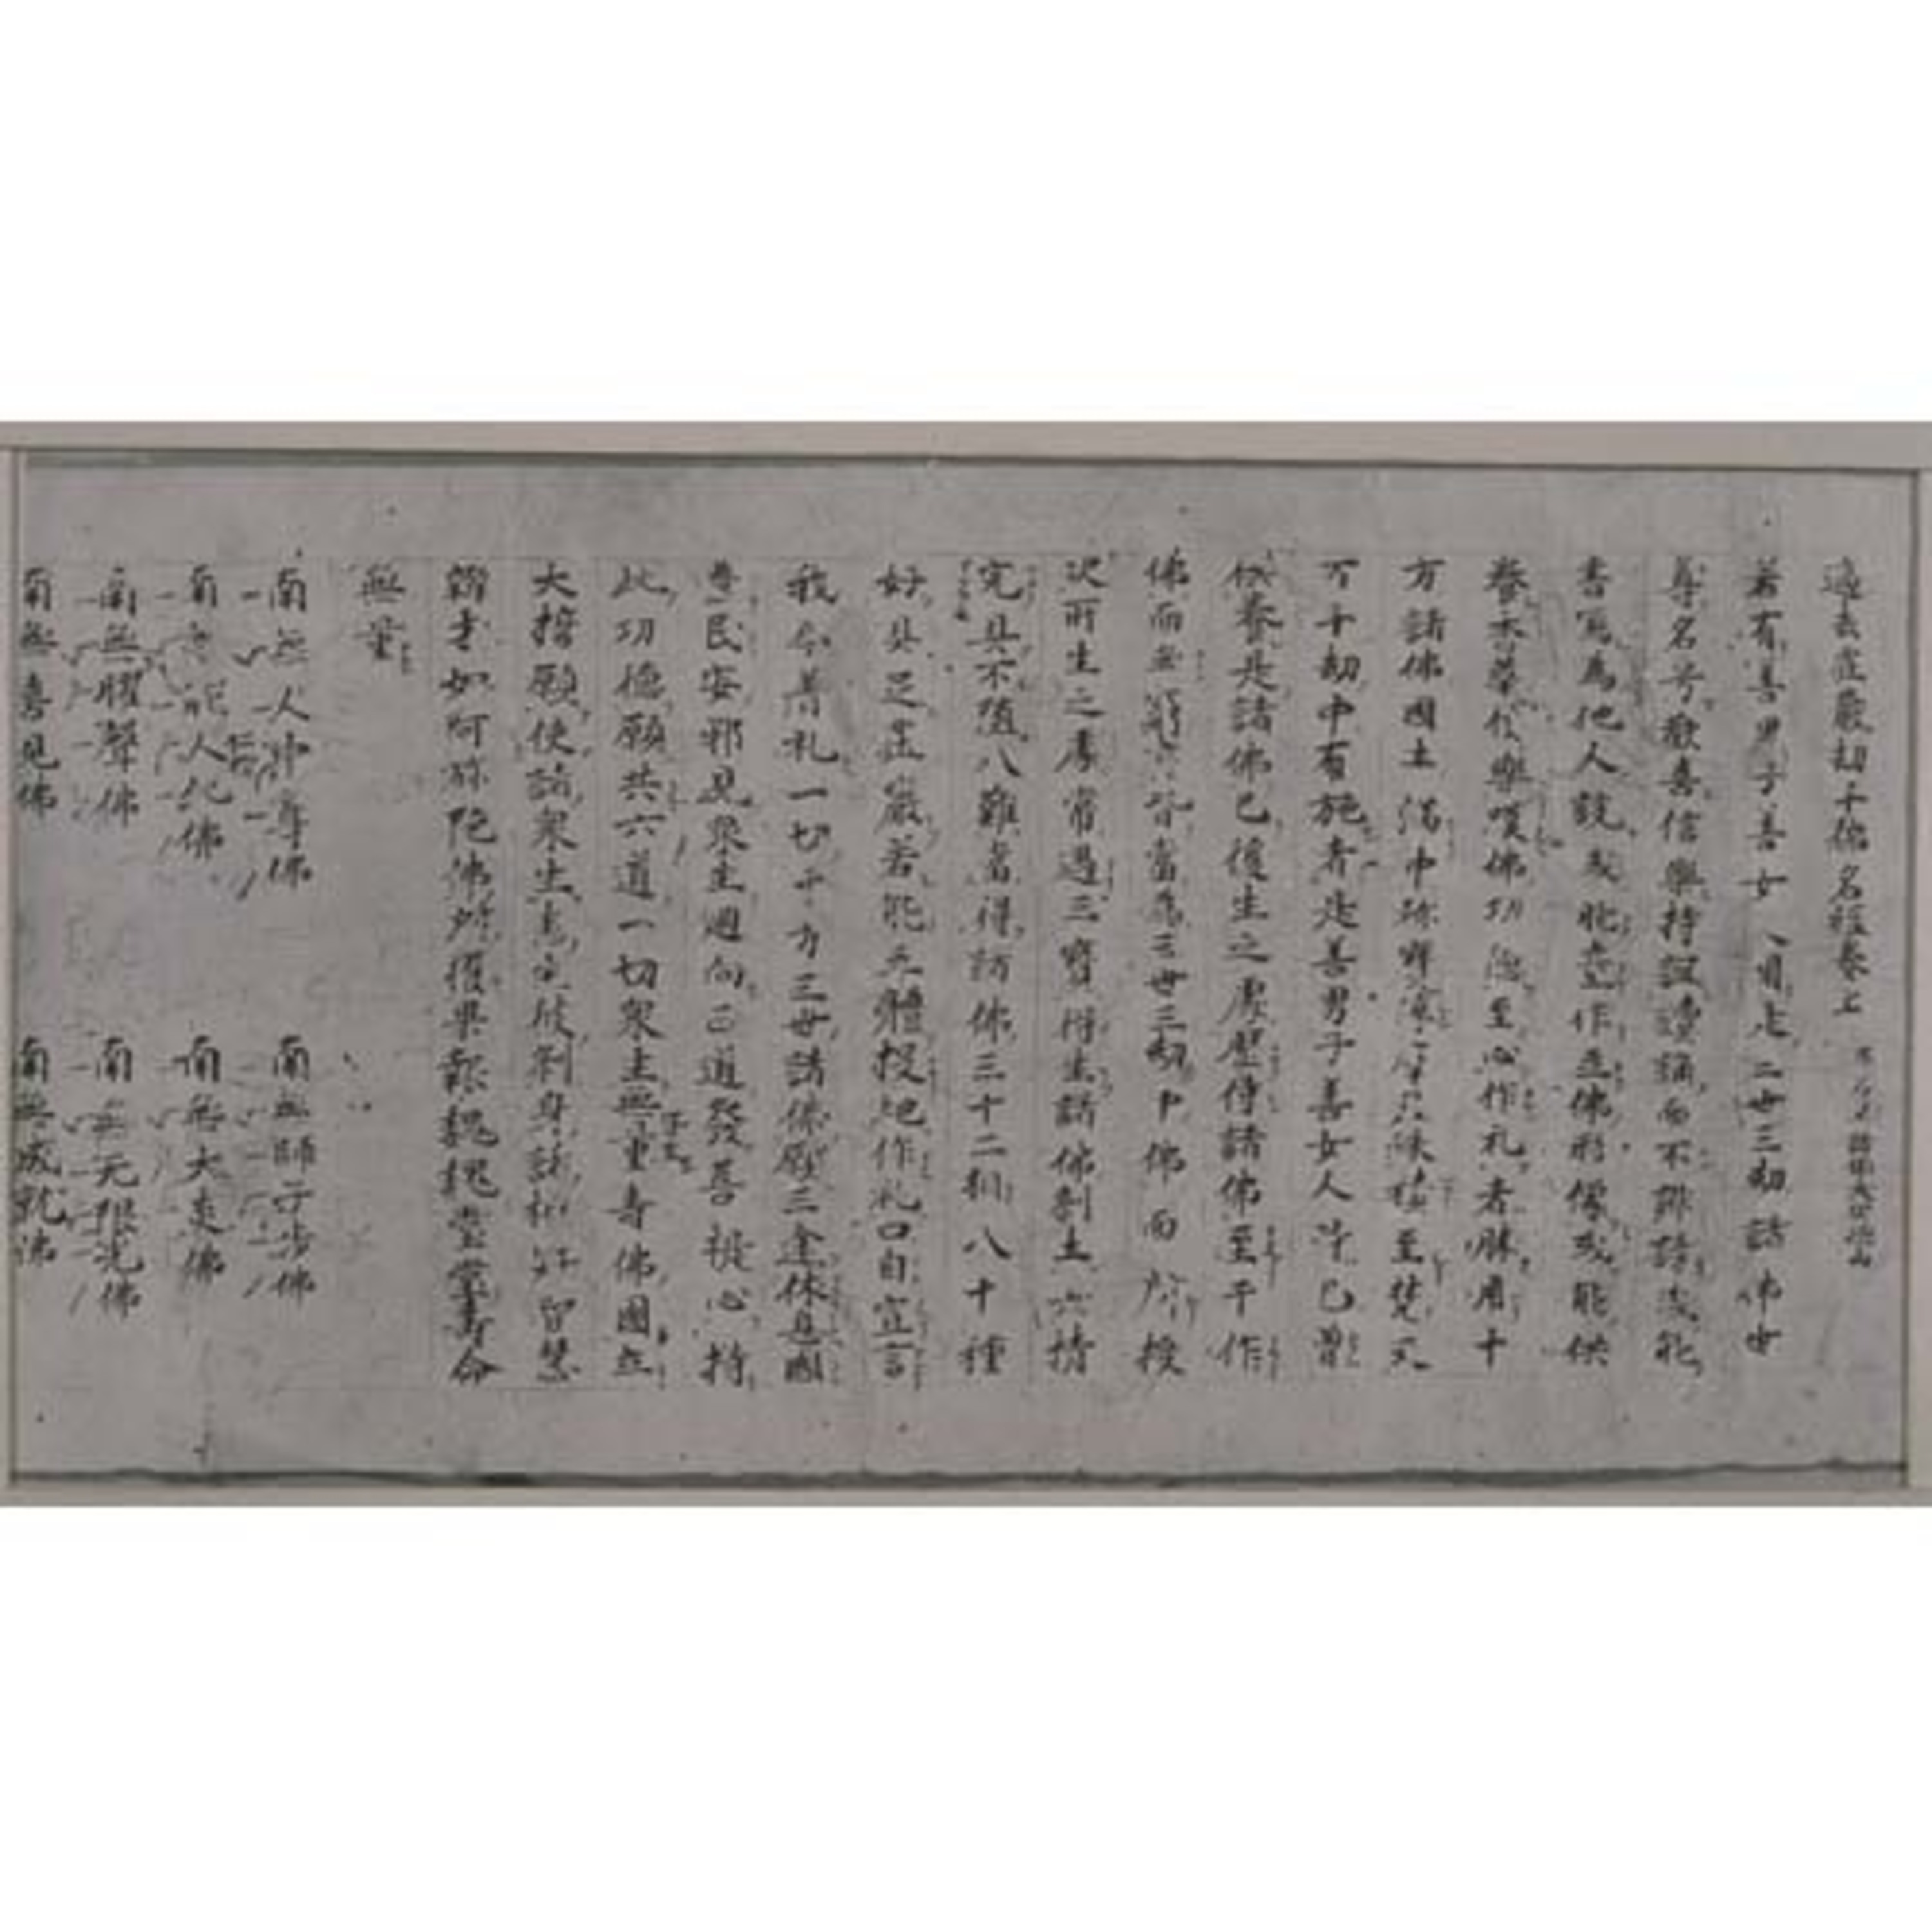 過去莊嚴劫千佛名経卷上
若有善男子善女人聞是三世三劫諸佛世
尊名号歡喜信樂持諷讀誦而不誹謗或能
書寫為他人說或能畫作立佛形像或能供
養香華伎樂嘆佛功德至心作礼者勝用十
方諸佛國土滿中珍寶積至梵天
万千劫中有施者是善男子善女人等已曾
供養是諸佛已後生之處歷侍諸佛至于作
佛而無皆當為三世三劫中佛而所授
決所生之處常遇三寶得生諸佛剎土六情
完具不墮八難當得諸佛三十二相八十種
好具足莊嚴若能五體投地作礼口自宣言
我今普礼一切十方三世諸佛願三塗休息國
豊民安邪見衆生迴向正道發菩提心持
此功德願共六道一切衆生生無量壽佛國立
大誓願使諸衆生悉生彼剎身諸相好智慧
辯才如阿弥陀佛所獲果報巍巍堂堂壽命
無量
南無人中尊佛 南無師子步佛
南無能人化佛 南無大炎佛
南無曜聲佛 南無无限光佛
南無喜見佛 南無成就佛